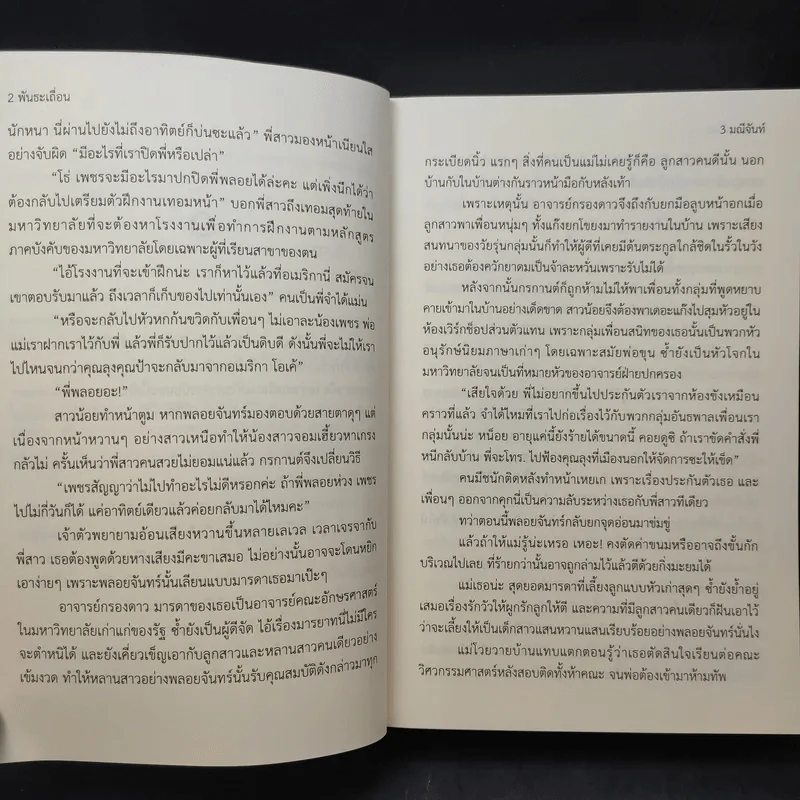 2 พันธะเถื่อน
นักหนา นี่ผ่านไปยังไม่ถึงอาทิตย์ก็บ่นซะแล้ว” พี่สาวมองหน้าเนียนใส
อย่างจับผิด “มีอะไรที่เราปิดพี่หรือเปล่า”
“โธ่ เพชรจะมีอะไรมาปกปิดพี่พลอยได้ล่ะคะ แต่เพิ่งนึกได้ว่า
ต้องกลับไปเตรียมตัวฝึกงานเทอมหน้า” บอกพี่สาวถึงเทอมสุดท้ายใน
มหาวิทยาลัยที่จะต้องหาโรงงานเพื่อทำการฝึกงานตามหลักสูตร
ภาคบังคับของมหาวิทยาลัยโดยเฉพาะผู้ที่เรียนสาขาของตน
“ไอ้โรงงานที่จะเข้าฝึกน่ะ เราก็หาไว้แล้วที่อเมริกานี่ สมัครจน
เขาตอบรับมาแล้ว ถึงเวลาก็เก็บของไปเท่านั้นเอง” คนเป็นพี่จำได้แม่น
“หรือจะกลับไปหัวหกก้นขวิดกับเพื่อนๆ ไม่เอาละน้องเพชร พ่อ
แม่เราฝากเราไว้กับพี่ แล้วพี่ก็รับปากไว้แล้วเป็นดิบดี ดังนั้นพี่จะไม่ให้เรา
ไปไหนจนกว่าคุณลุงคุณป้าจะกลับมาจากอเมริกา โอเค้”
“พี่พลอยอะ!”
สาวน้อยทำหน้าตูม หากพลอยจันทร์มองตอบด้วยสายตาดุๆ แต่
เนื่องจากหน้าหวานๆ อย่างสาวเหนือทำให้น้องสาวจอมเฮี้ยวหาเกรง
กลัวไม่ ครั้นเห็นว่าพี่สาวคนสวยไม่ยอมแน่แล้ว กรกานต์จึงเปลี่ยนวิธี
“เพชรสัญญาว่าไม่ไปทำอะไรไม่ดีหรอกค่ะ ถ้าพี่พลอยห่วง เพชร
ไปไม่กี่วันก็ได้ แค่อาทิตย์เดียวแล้วค่อยกลับมาได้ไหมคะ”
เจ้าตัวพยายามอ้อนเสียงหวานขึ้นหลายเลเวล เวลาเจรจากับ
พี่สาว เธอต้องพูดด้วยหางเสียงมีคะขาเสมอ ไม่อย่างนั้นอาจจะโดนหยิก
เอาง่ายๆ เพราะพลอยจันทร์นั้นเลียนแบบมารดาเธอมาเป๊ะๆ
อาจารย์กรองดาว มารดาของเธอเป็นอาจารย์คณะอักษรศาสตร์
ในมหาวิทยาลัยเก่าแก่ของรัฐ ซ้ำยังเป็นผู้ดีจัด ไอ้เรื่องมารยาทนี่ไม่มีใคร
จะตำหนิได้ และยังเคี่ยวเข็ญเอากับลูกสาวและหลานสาวคนเดียวอย่าง
เข้มงวด ทำให้หลานสาวอย่างพลอยจันทร์นั้นรับคุณสมบัติดังกล่าวมาทุก
3 มณีจันท์
กระเบียดนิ้ว แรกๆ สิ่งที่คนเป็นแม่ไม่เคยรู้ก็คือ ลูกสาวคนดีนั้น นอก
บ้านกับในบ้านต่างกันราวหน้ามือกับหลังเท้า
เพราะเหตุนั้น อาจารย์กรองดาวจึงถึงกับยกมือลูบหน้าอกเมื่อ
ลูกสาวพาเพื่อนหนุ่มๆ ทั้งแก๊งยกโขยงมาทำรายงานในบ้าน เพราะเสียง
สนทนาของวัยรุ่นกลุ่มนั้นก็ทำให้ผู้ดีที่เคยมีต้นตระกูลใกล้ชิดในรั้วในวัง
อย่างเธอต้องควักยาดมเป็นจ้าละหวั่นเพราะรับไม่ได้
หลังจากนั้นกรกานต์ก็ถูกห้ามไม่ให้พาเพื่อนทั้งกลุ่มที่พูดหยาบ
คายเข้ามาในบ้านอย่างเด็ดขาด สาวน้อยจึงต้องพาเดอะแก๊งไปสุมหัวอยู่ใน
ห้องเวิร์กช็อปส่วนตัวแทน เพราะกลุ่มเพื่อนสนิทของเธอนั้นเป็นพวกหัว
อนุรักษ์นิยมภาษาเก่าๆ โดยเฉพาะสมัยพ่อขุน ซ้ำยังเป็นหัวโจกใน
มหาวิทยาลัยจนเป็นที่หมายหัวของอาจารย์ฝ่ายปกครอง
“เสียใจด้วย พี่ไม่อยากขึ้นไปประกันตัวเราจากห้องขังเหมือน
คราวที่แล้ว จำได้ไหมที่เราไปก่อเรื่องไว้กับพวกกลุ่มอันธพาลเพื่อนเรา
กลุ่มนั้นน่ะ หน็อย อายุแค่นี้ยังร้ายได้ขนาดนี้ คอยดูซิ ถ้าเราขัดคำสั่งพี่
หนีกลับบ้าน พี่จะโทร. ไปฟ้องคุณลุงที่เมืองนอกให้จัดการซะให้เข็ด”
คนมีชนักติดหลังทำหน้าเหยเก เพราะเรื่องประกันตัวเธอ และ
เพื่อนๆ ออกจากคุกนี่เป็นความลับระหว่างเธอกับพี่สาวทีเดียว
ทว่าตอนนี้พลอยจันทร์กลับยกจุดอ่อนมาข่มขู่
แล้วถ้าให้แม่รู้น่ะเหรอ เหอะ! คงตัดค่าขนมหรืออาจถึงขั้นกัก
บริเวณไปเลย ที่ร้ายกว่านั้นอาจถูกล่ามไว้แล้วตีด้วยกิ่งมะยมได้
แม่เธอน่ะ สุดยอดมารดาที่เลี้ยงลูกแบบหัวเก่าสุดๆ ซ้ำยังย้ำอยู่
เสมอเรื่องรักวัวให้ผูกรักลูกให้ตี และความที่มีลูกสาวคนเดียวก็ฝันเอาไว้
ว่าจะเลี้ยงให้เป็นเด็กสาวแสนหวานแสนเรียบร้อยอย่างพลอยจันทร์นั่นไง
แม่โวยวายบ้านแทบแตกตอนรู้ว่าเธอตัดสินใจเรียนต่อคณะ
วิศวกรรมศาสตร์หลังสอบติดทั้งห้าคณะ จนพ่อต้องเข้ามาห้ามทัพ